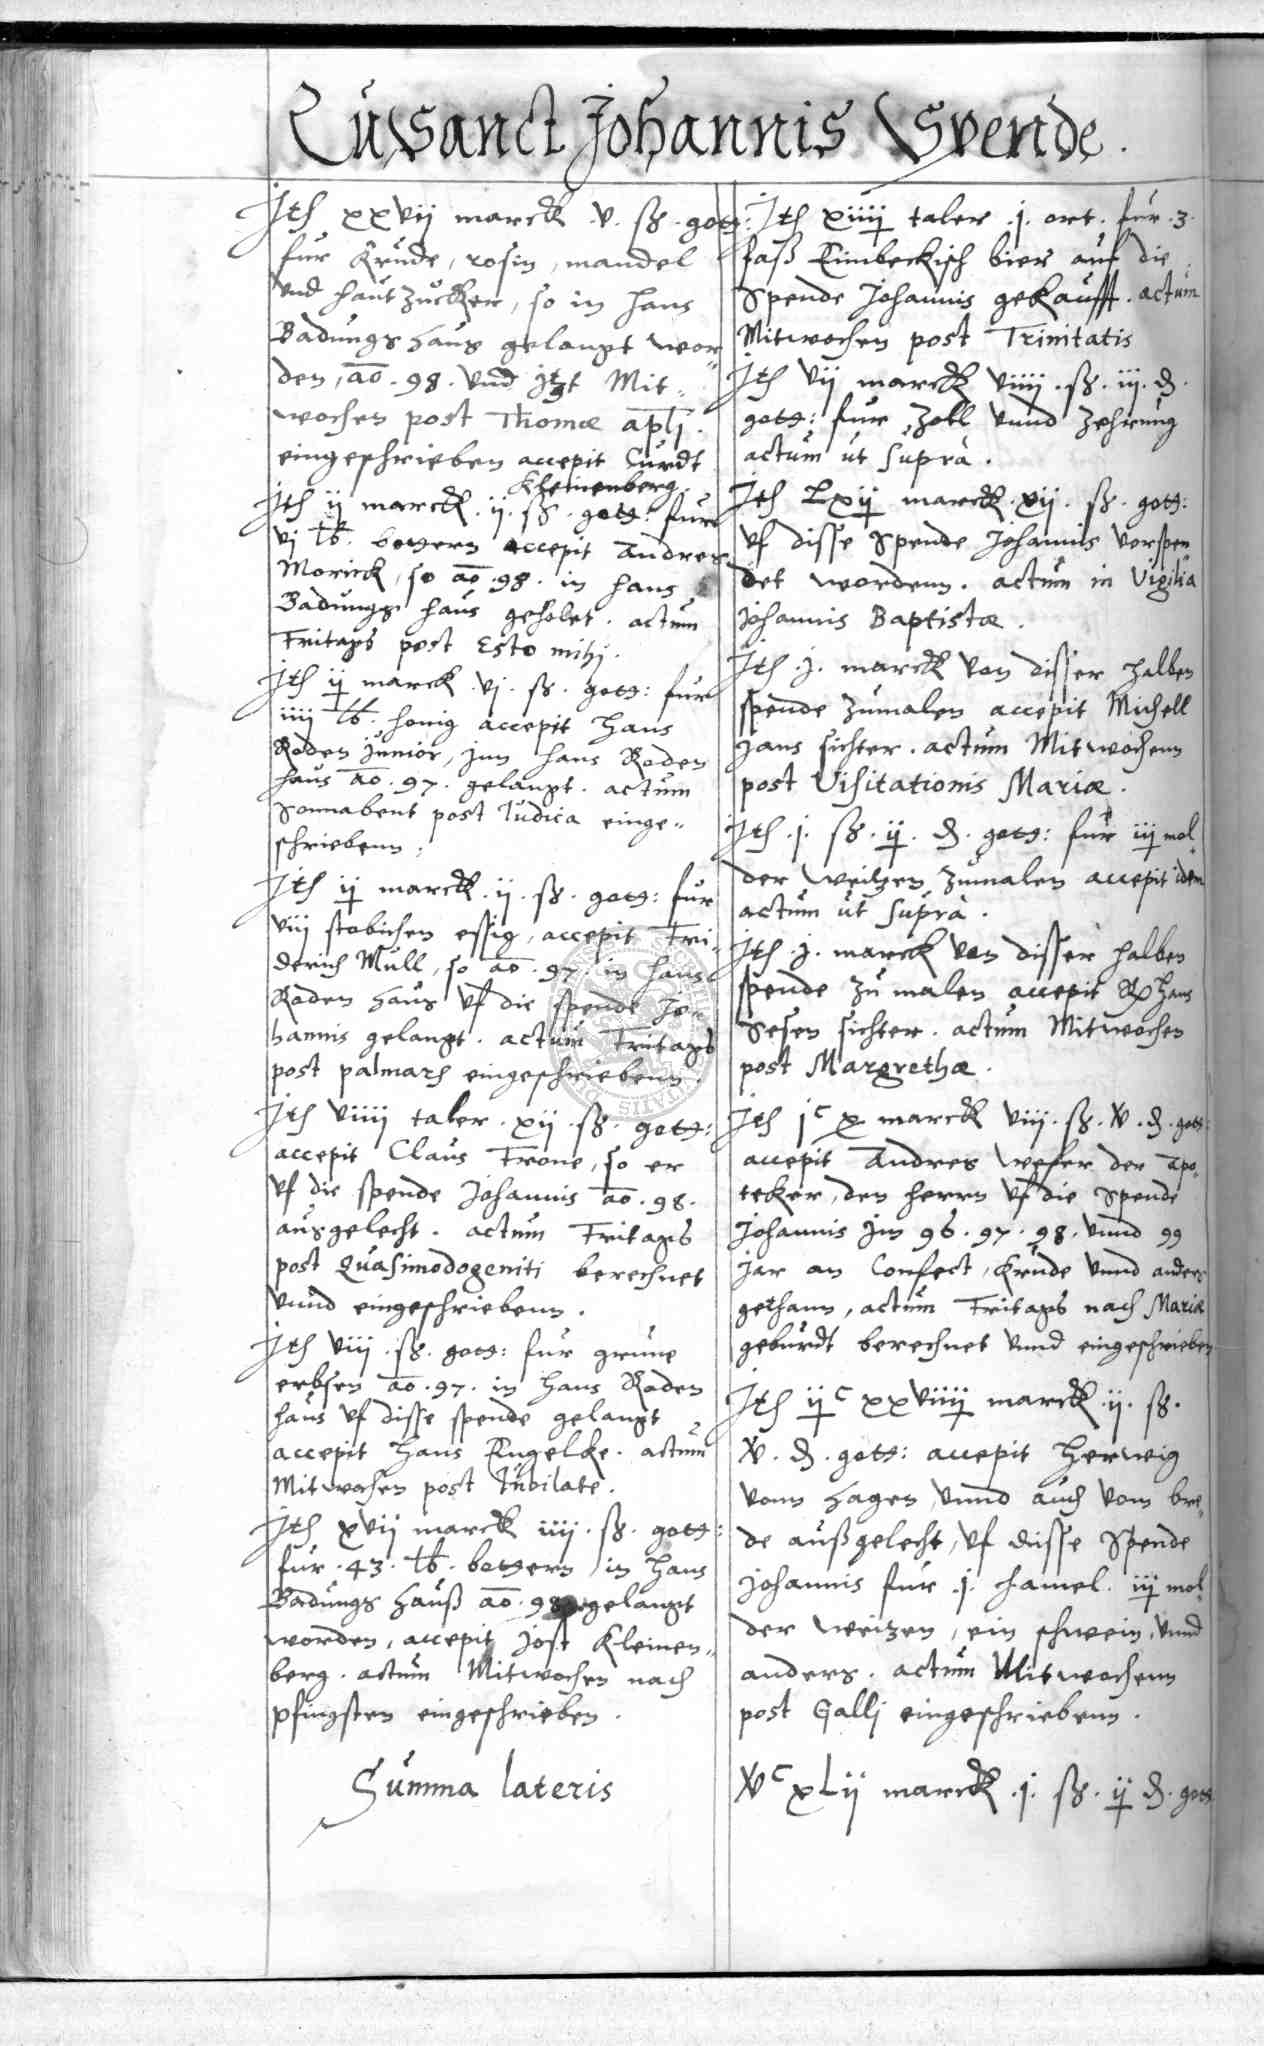 Zu Sanct Johannis Spende.
Itē xxvij marck .v. ß. gott:
fur krude, rosin, mandel
vnd haut zucker, so in Hans
Badungs haus gelangt wor„
den, ao. 98. vnd itzt Mit„
wochen post Thomæ apłj.
eingeschrieben accepit Curdt
Kleinenberg.
Itē ij marck. ij. ß. gott: fur
vj lb. bottern accepit Andres
Morick, so ao. 98. in Hans
Badungs haus geholet. actum
Fritags post Esto mihj.
Itē ij marck. vj. ß. gott: fur
iiij lb. honig accepit Hans
Roden junior, jnn Hans Roden
haus ao. 97. gelangt. actum
Sonnabent post Judica einge„
schriebenn.
Itē ij marck. ij. ß. gott: fur
viij stobichen essig, accepit Fri„
derich Mull, so ao. 97. in Hans
Roden haus vf die spende Jo„
hannis gelangt. actum Fritags
post palmarū eingeschriebenn.
Itē viiij taler. xij. ß. gott:
accepit Claus Frone, so er
vf die spende Johannis ao. 98.
ausgelecht. actum Fritags
post Quasimodogeniti berechnet
vnnd eingeschriebenn.
Itē viij. ß. gott: fur grune
erbsen ao. 97. in Hans Roden
haus vf disse spende gelangt
accepit Hans Engelke. actum
Mitwochen post Jubilate.
Itē xvij marck iiij. ß. gott:
fur. 43. lb. bottern in Hans
Badungs hauß ao. 98 gelangt
worden, accepit Jost Kleinen„
berg. actum Mitwochen nach
pfingsten eingeschrieben.
Summa lateris
Itē xiiij taler .j. ort. fur .3.
faß Eimbeckisch bier auf die
Spende Johannis gekaufft. actum
Mitwochen post Trinitatis
Itē vij marck viiij. ß. iij. ₰.
gott: fur zoll vnnd zehrung
actum ut supra.
Itē Lxij marck. vij. ß. gott:
vf disse Spende Johannis verspen„
det wordenn. actum in Vigilia
Johannis Baptistæ.
Itē .j. marck von disser halben
spende zumalen accepit Michell
Jans sichter. actum Mitwochenn
post Visitationis Mariæ.
Itē .j. ß. ij. ₰. gott: fur iij mol„
der weitzen zumalen accepit idem
actum ut supra.
Itē .j. marck von disser halben
spende zu malen accepit Hans
Sesen sichter. actum Mitwochen
post Margrethæ.
Itē jᶜ x marck viij. ß. v. ₰. gott:
accepit Andres Weser der apo„
teker, den herrn vf die Spende
Johannis jm 96. 97. 98. vnnd 99
jar an Confect, krude vnnd anders
gethann, actum Fritags nach Mariæ
geburdt berechnet vnnd eingeschrieben
Itē ijᶜ xxviiij marck. ij. ß.
v. ₰. gott: accepit Herwig
vonn Hagen, vnnd auch vom bre„
de außgelecht, vf disse Spende
Johannis fur .j. hamel. iij mol„
der weitzen, ein schwein, vnnd
anders. actum Mitwochenn
post Gallj eingeschriebenn.
vᶜ xLij marck .j. ß. ij ₰. gott